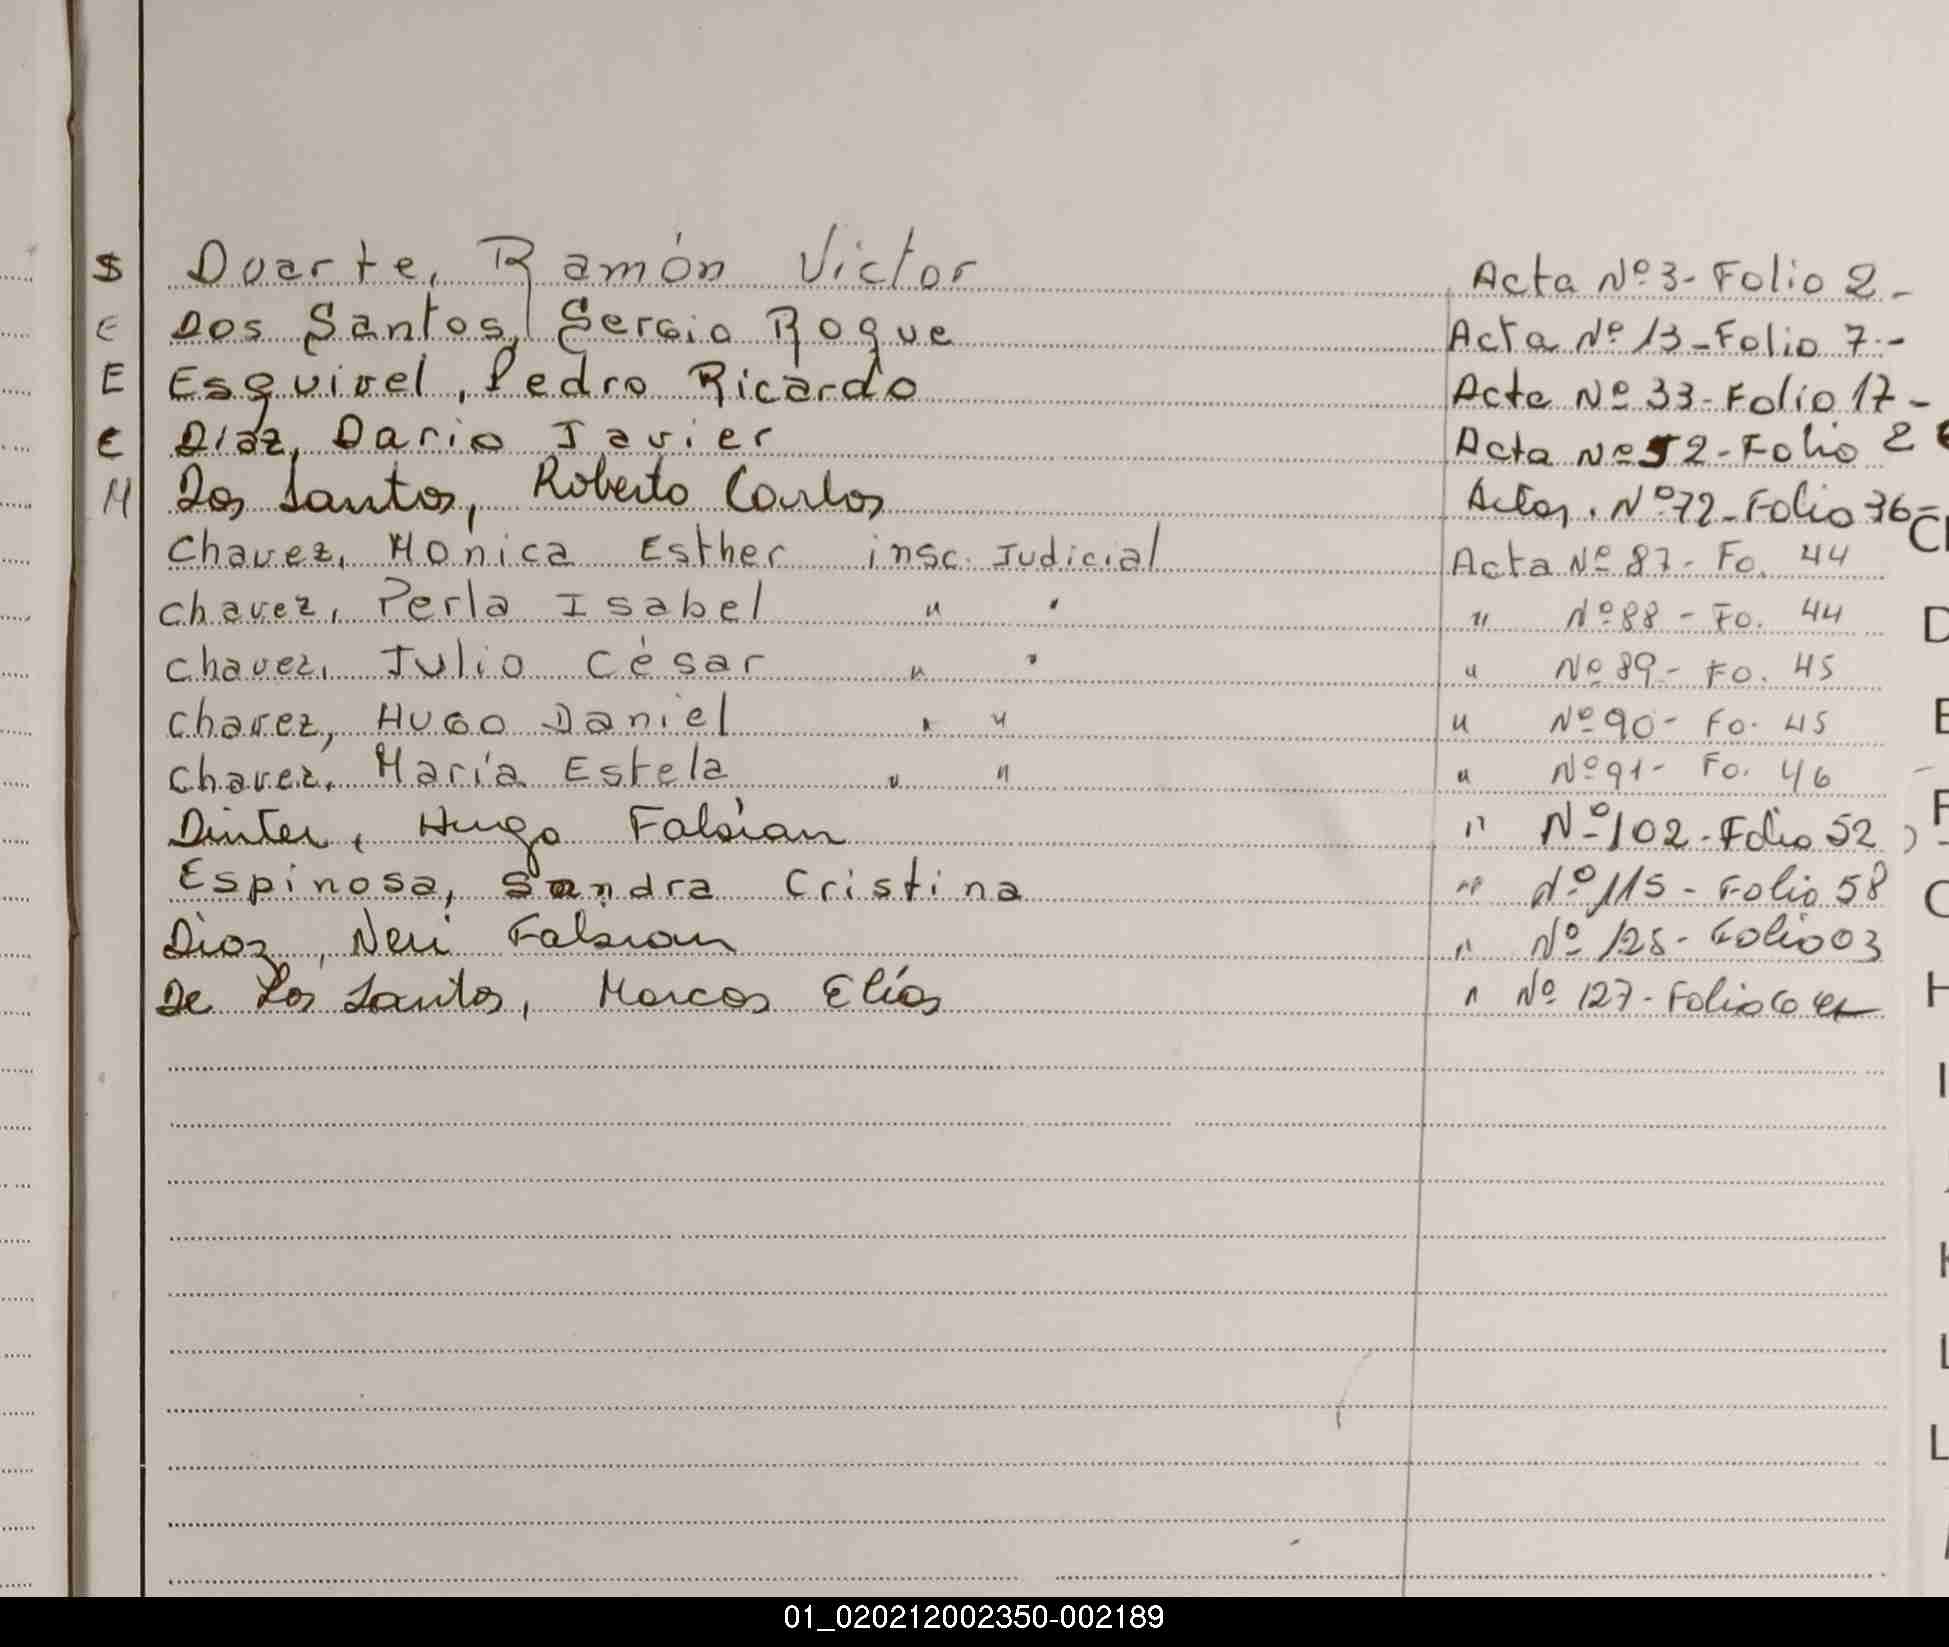 $ Duarte, Ramón Victor Acta Nº 3 - Folio 2 -
E Dos Santos, Sergio Roque Acta Nº 13 - Folio 7.-
E Esquivel, Pedro Ricardo Acta Nº 33 - Folio 17 -
E Diaz, Dario Javier Acta Nº 52 - Folio 2
M Dos Santos, Roberto Carlos Actas. Nº 72 - Folio 36 -
Chavez, Monica Esther insc. Judicial Acta Nº 87 - Fo. 44
Chavez, Perla Isabel " " " Nº 88 - Fo. 44
Chavez, Julio César " " " Nº 89 - Fo. 45
Chavez, Hugo Daniel " " " Nº 90 - Fo. 45
Chavez, María Estela " " " Nº 91 - Fo. 46
Dinter, Hugo Fabian " Nº 102 - Folio 52
Espinosa, Sandra Cristina " Nº 115 - Folio 58
Diaz, Neri Fabian " Nº 125 - Folio 03
De Los Santos, Marcos Elías " Nº 127 - Folio 64
01_020212002350-002189